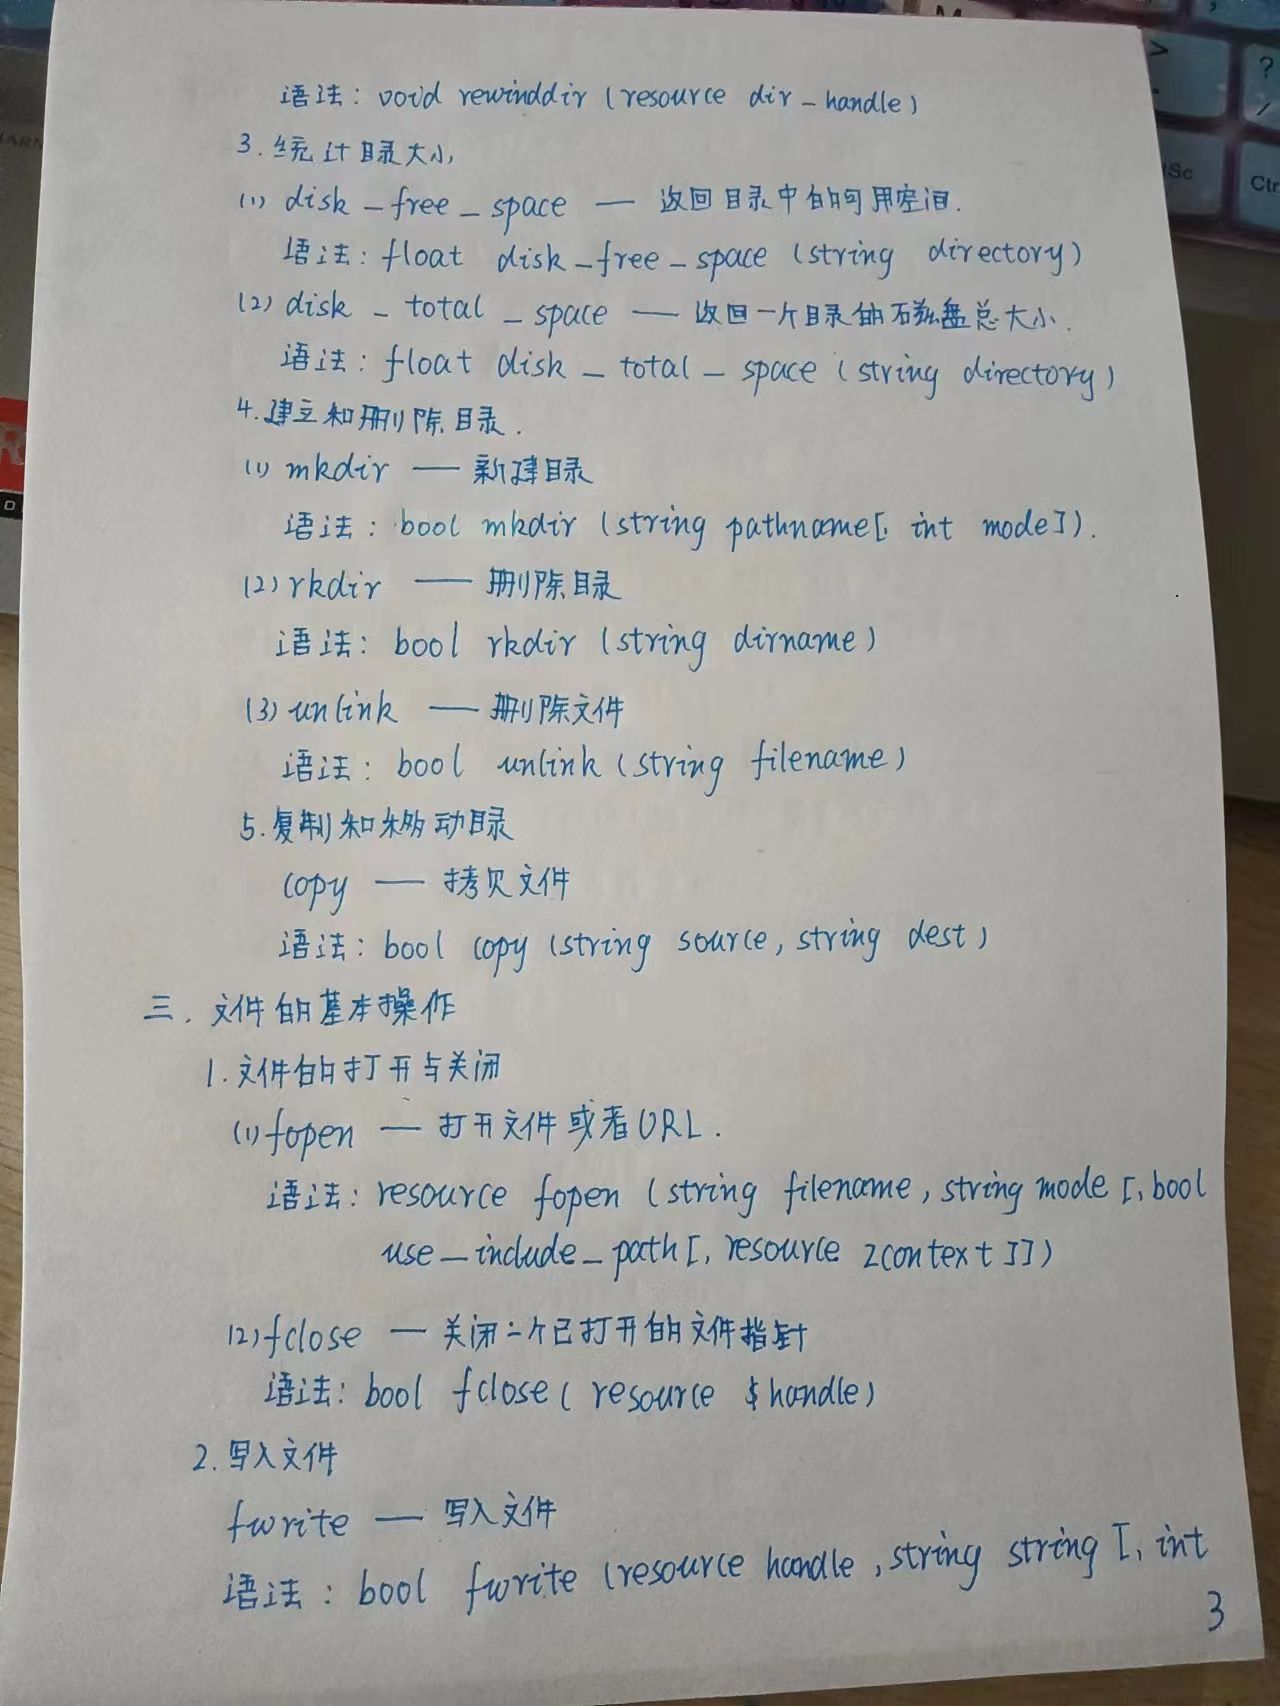 语法: void rewinddir (resource dir_handle)
3.统计目录大小
(1) disk_free_space — 返回目录中的可用空间.
语法: float disk_free_space (string directory)
(2) disk_total_space — 返回一个目录的磁盘总大小.
语法: float disk_total_space (string directory)
4.建立和删除目录.
(1) mkdir — 新建目录
语法: bool mkdir (string pathname[, int mode]).
(2) rkdir — 删除目录
语法: bool rkdir (string dirname)
(3) unlink — 删除文件
语法: bool unlink (string filename)
5.复制和移动目录
copy — 拷贝文件
语法: bool copy (string source, string dest)
三. 文件的基本操作
1.文件的打开与关闭
(1) fopen — 打开文件或者URL.
语法: resource fopen (string filename, string mode [, bool
use_include_path [, resource zcontext ]])
(2) fclose — 关闭一个已打开的文件指针
语法: bool fclose ( resource $handle)
2.写入文件
fwrite — 写入文件
语法: bool fwrite (resource handle, string string [, int
3